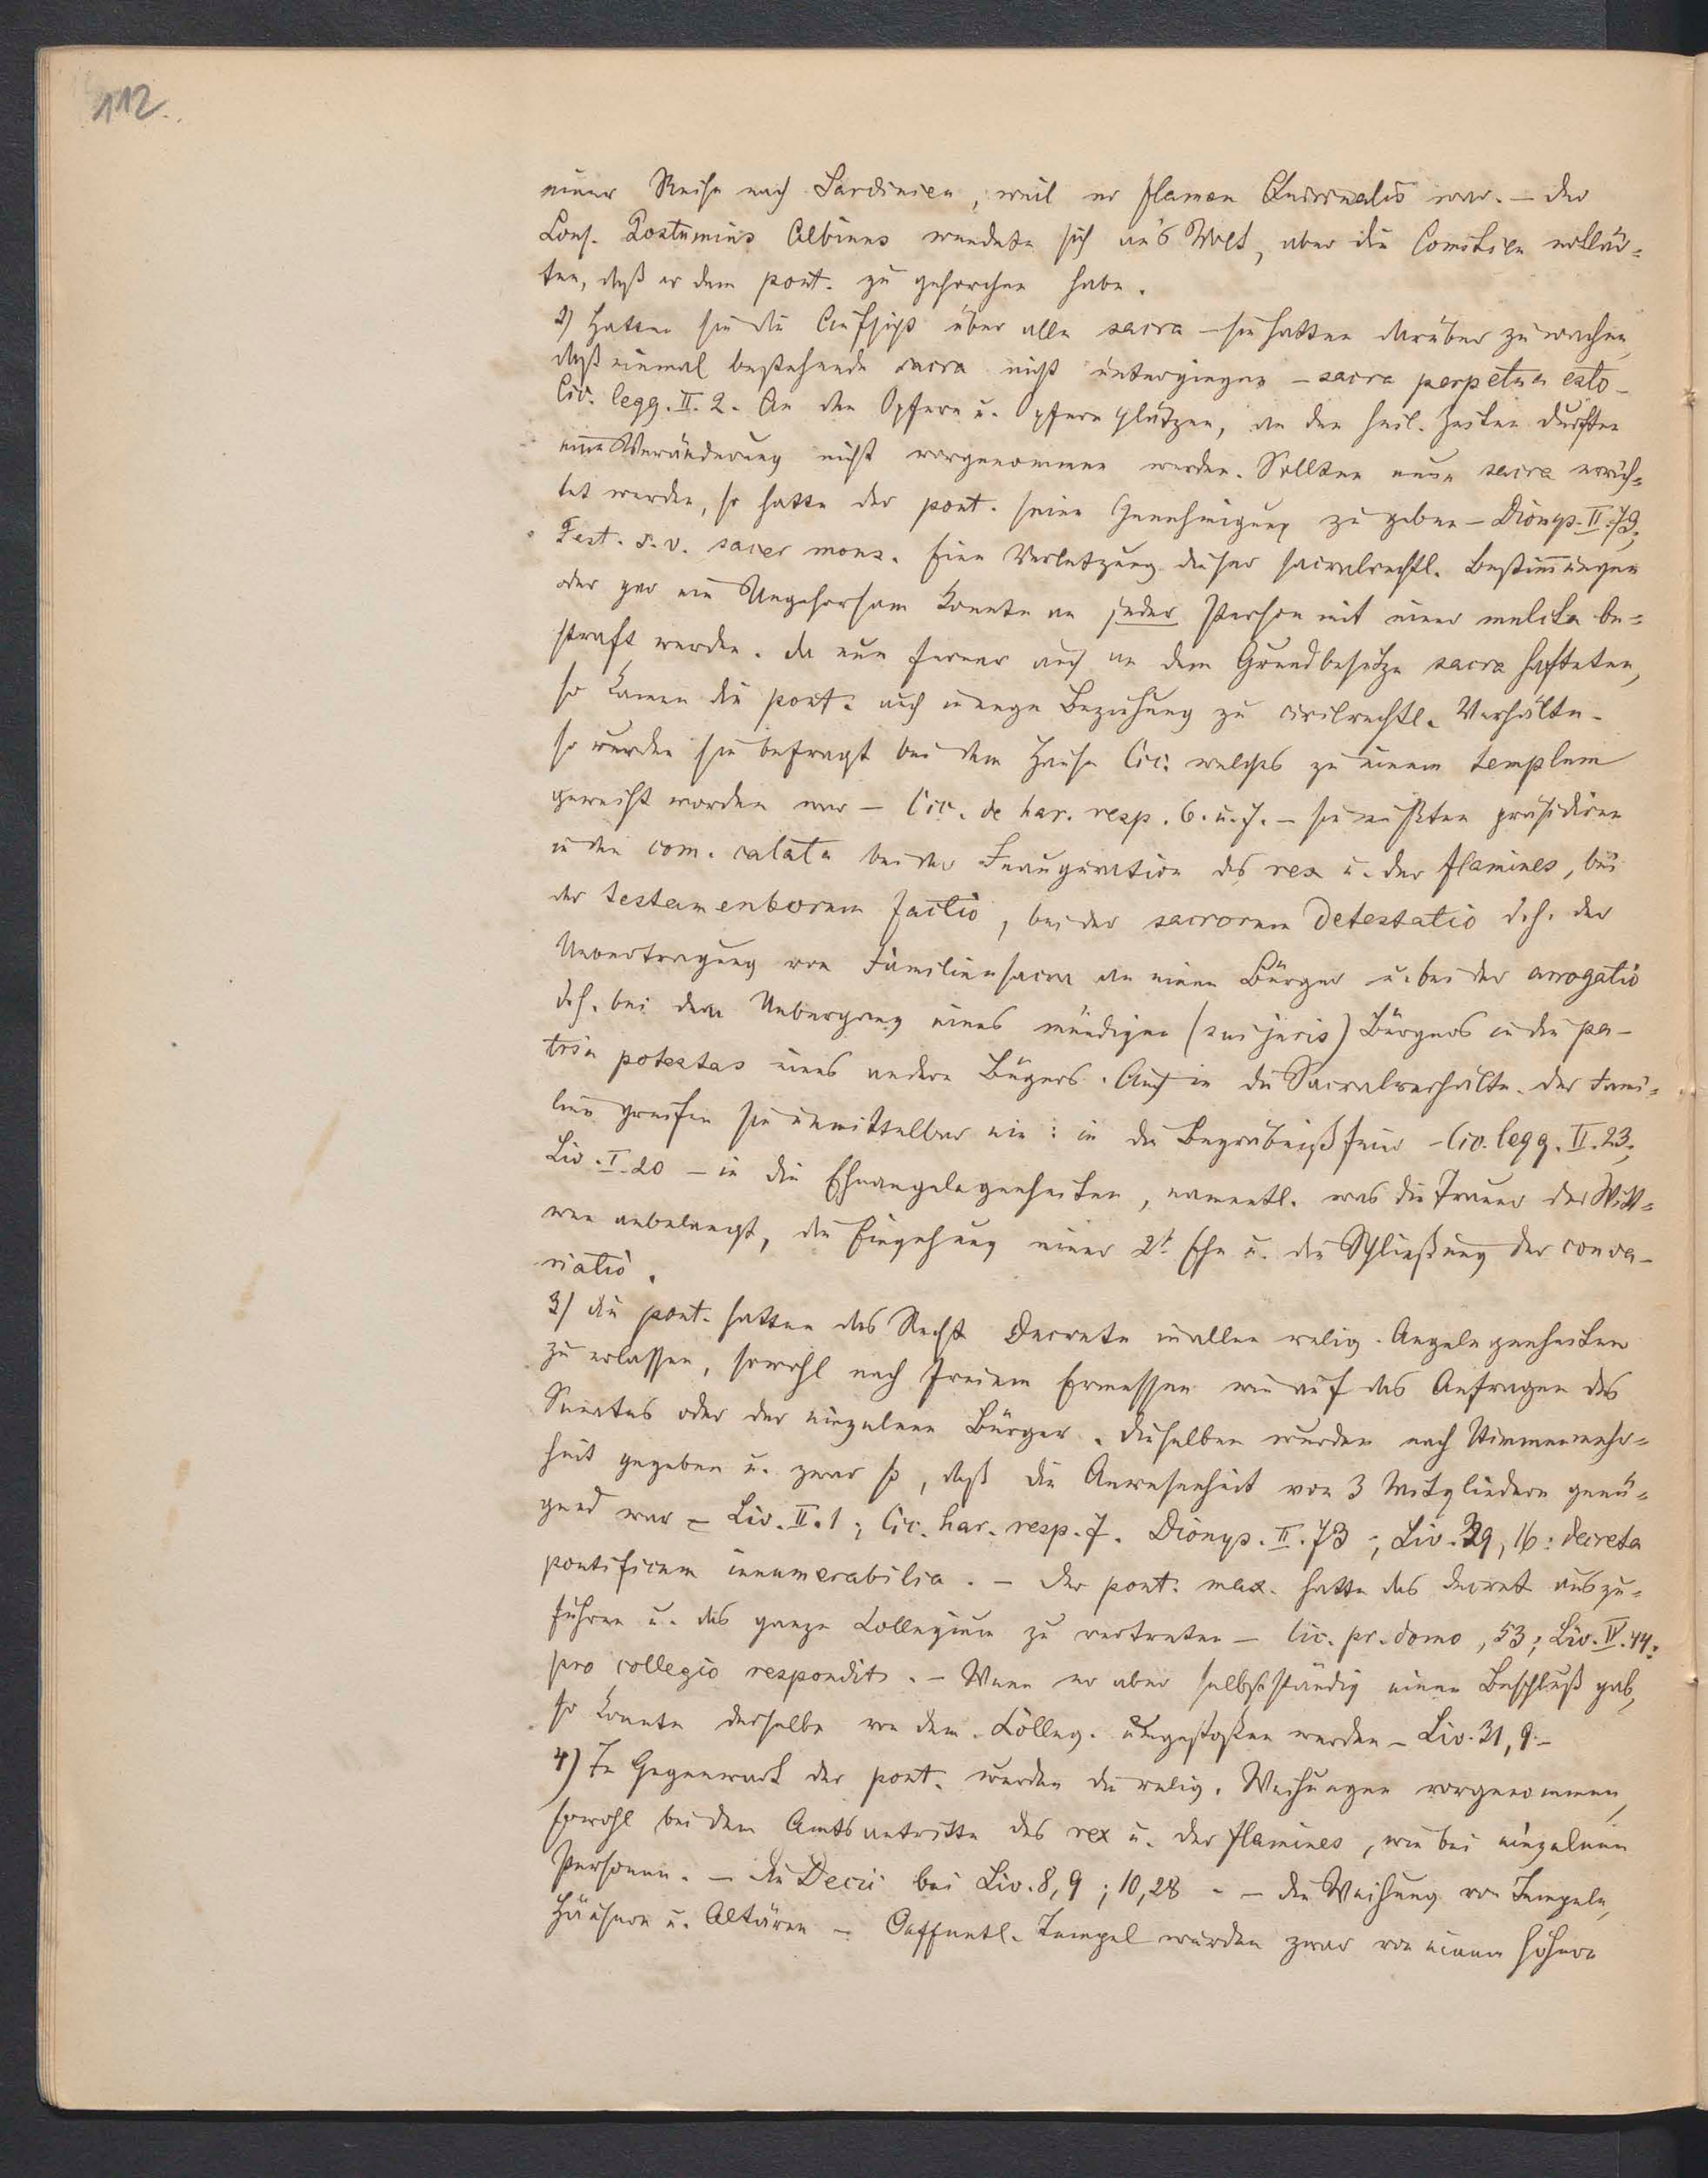 112.
einer Reise nach Sardinien, weil er flamen Quirinalis war. – Der
Cons. Postumius Albinus wendete sich an's Volk, aber die Comitien erklär=
ten, daß er dem pont. zu gehorchen habe.
2) Hatten sie die Aufsicht über alle sacra – sie hatten darüber zu wachen,
daß einmal bestehende sacra nicht untergiengen – sacra perpetua esto –
Cic. legg. II. 2. An den Opfern u. Opferplätzen, an den heil. Zeiten durften
eine Veränderung nicht vorgenommen werden. Sollten neue sacra errich=
tet werden, so hatte der pont. seine Genehmigung zu geben – Dionys. II. 73;
Fest. s. v. sacer mons. Eine Verletzung dieser sacralrechtl. Bestimmungen
oder gar ein Ungehorsam konnte an jeder Person mit einer multa be=
straft werden. Da nun ferner auch an dem Grundbesitze sacra hafteten,
so kamen die pont. auch in enge Beziehung zu civilrechtl. Verhältn.
so wurden sie befragt bei dem Hause Cic. welches zu einem templum
geweiht worden war – Cic. de har. resp. 6. u. 7. – sie mußten präsidiren
in den com. calata bei der Inauguration des rex u. der flamines, bei
der testamentorum factio, bei der sacrorum detestatio d. h. der
Uebertragung von Familiensacra an einen Bürger u. bei der arrogatio
d. h. bei dem Uebergang eines mündigen (sui juris) Bürgers in die pa-
tria potestas eines andern Bürgers. Auch in die Sacralverhältn. der Fami=
lien greifen sie unmittelbar ein: in die Begräbnißfeier – Cic. legg. II. 23;
Liv. I. 20 – in die Eheangelegenheiten, namentl. was die Trauer der Witt=
wen anbelangt, die Eingehung einer 2t. Ehe u. die Schließung der confar-
riatio.
3) die pont. hatten das Recht Decrete in allen relig. Angelegenheiten
zu erlassen, sowohl nach freiem Ermessen wie auf das Anfragen des
Senates oder der einzelnen Bürger. dieselben wurden nach Stimmenmehr=
heit gegeben u. zwar so, daß die Anwesenheit von 3 Mitgliedern genü=
gend war – Liv. II. 1; Cic. har. resp. 7. Dionys. II. 73; Liv. 39, 16: decreta
pontificum innumerabilia. – Der pont. max. hatte das Decret auszu=
führen u. das ganze Collegium zu vertreten – Cic. pr. domo, 53; Liv. IV. 44:
pro collegio respondit. – Wenn er aber selbstständig einen Beschluß gab,
so konnte derselbe von dem Colleg. umgestoßen werden – Liv. 31, 9. –
4) In Gegenwart der pont. wurden die relig. Weihungen vorgenommen,
sowohl bei dem Amtsantritte des rex u. der flamines, wie bei einzelnen
Personen. – die Decii bei Liv. 8, 9; 10, 28 – – die Weihung von Tempeln,
Häusern u. Altären – Oeffentl. Tempel wurden zwar von einem höhern